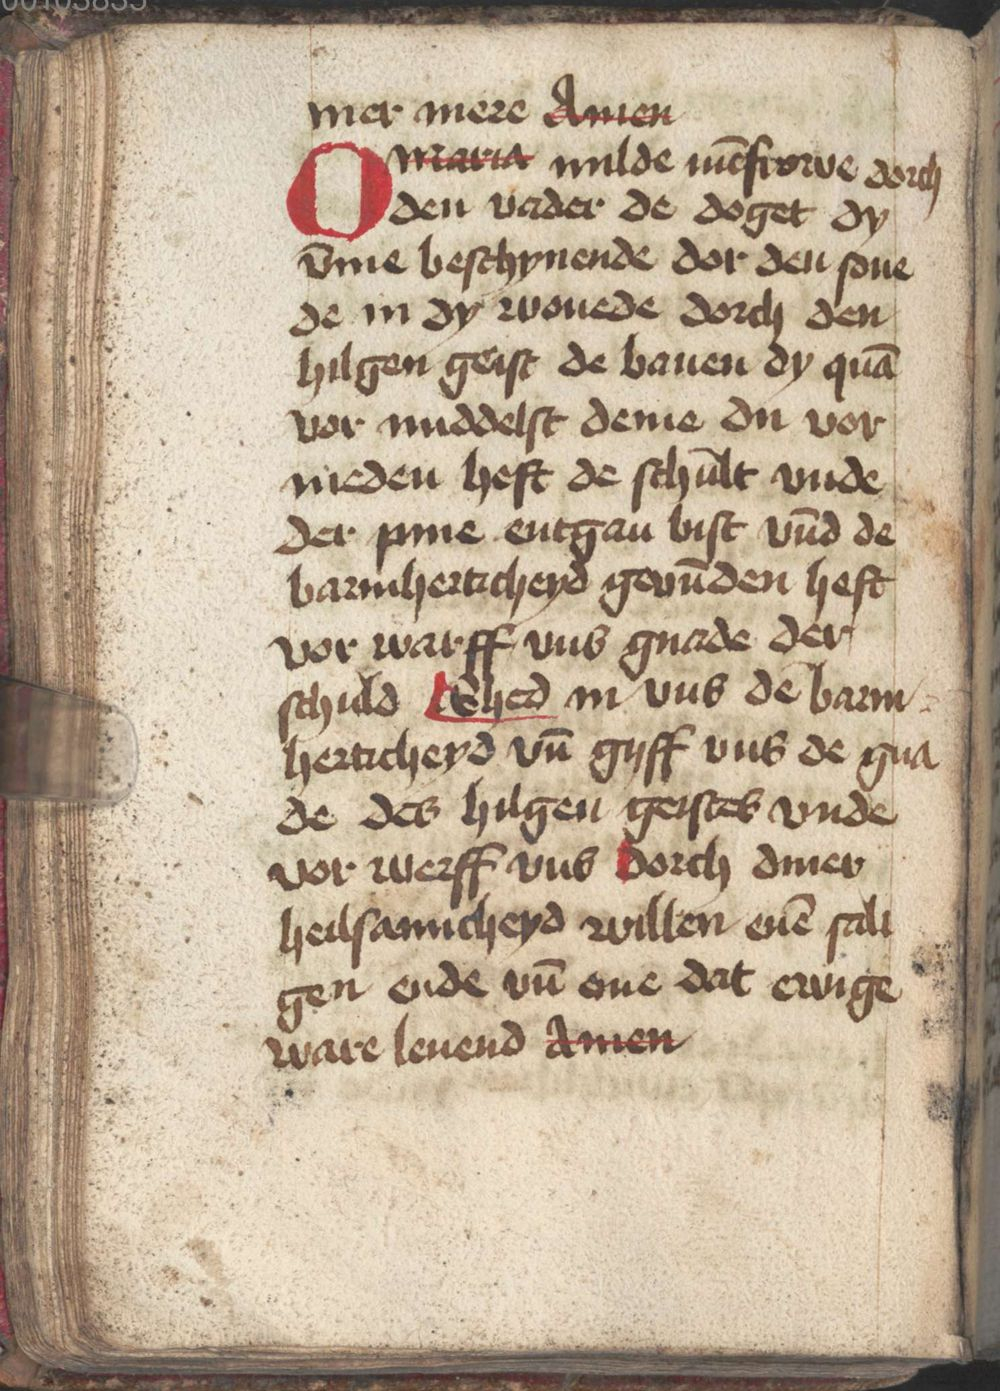 00103835
mer mere Amen
O Maria milde iūcfrowe dorch
den vader de doget dy
v̄me beschynende dor den sone
de in dy wonede dorch den
hilgen geist de bauen dy quā
vor middelst deme du vor
meden heft de schult vnde
der pine entgan bist vn̄d de
barmherticheyd gevūden heft
vor warff vns gnade der
schuld in vns de barm-
herticheyd vn̄ gyff vns de gna
de des hilgen geistes vnde
vor werff vns dorch diner
heilsamicheyd willen enē sali
gen ende vn̄ ene dat ewige
ware leuend Amen